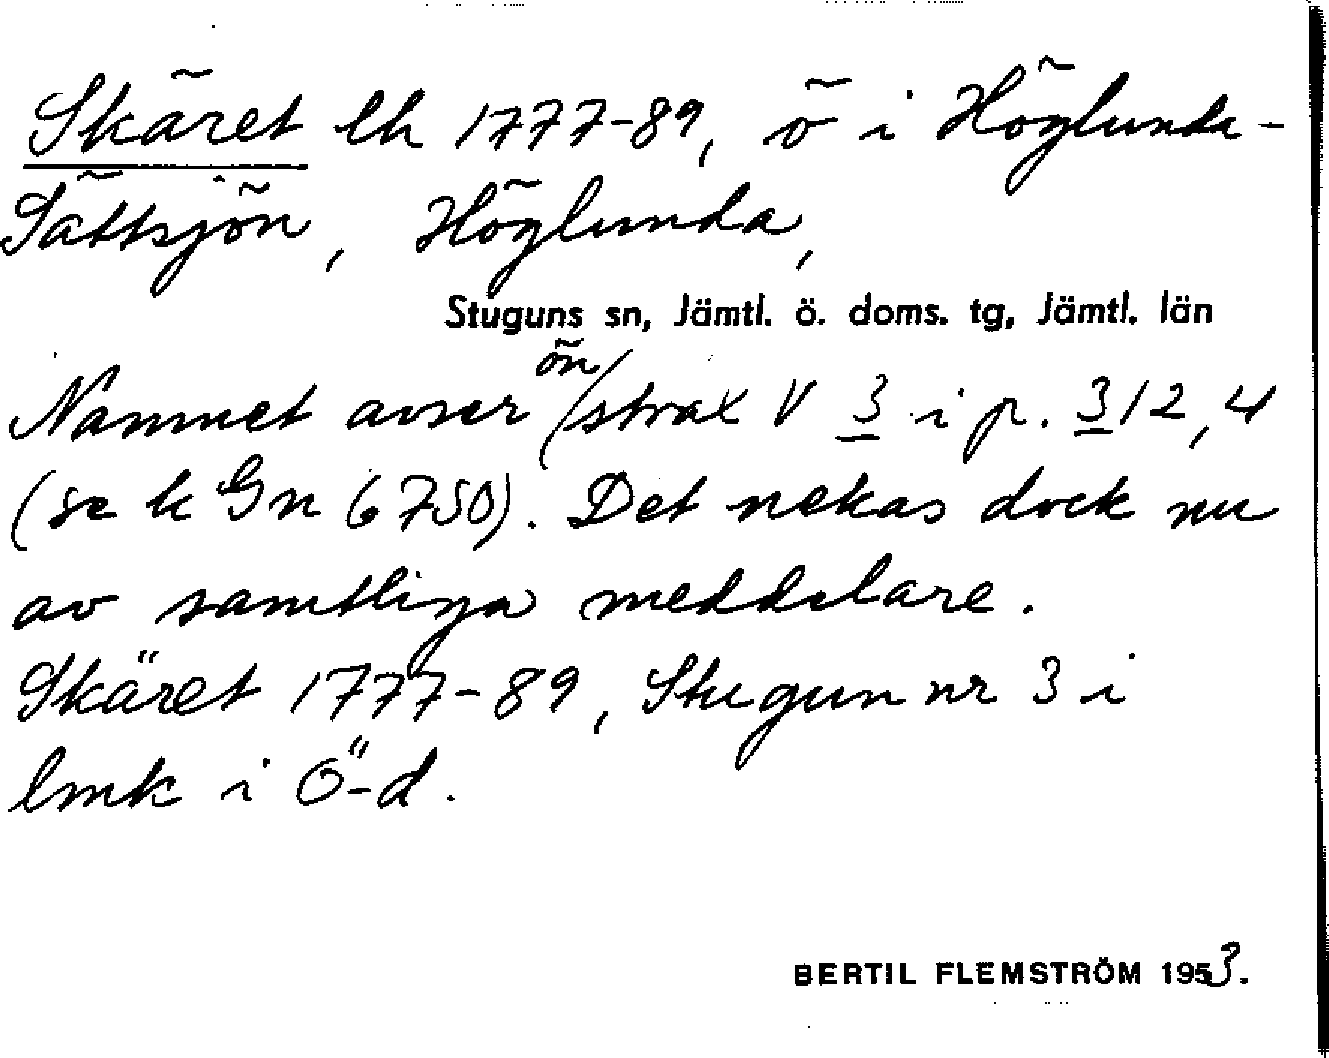 Skäret lh 1777-89, ö i Höglunda-
Sättsjön, Höglunda,
Stuguns sn, Jämtl. ö. doms. tg, Jämtl. län
Namnet avser ön strax V 3 i p. 312,4
(se k Gn 6750). Det nekas dock nu
av samtliga meddelare.
Skäret 1777-89, Stugun nr 3 i
lmk i Ö-d.
BERTIL FLEMSTRÖM 1953.